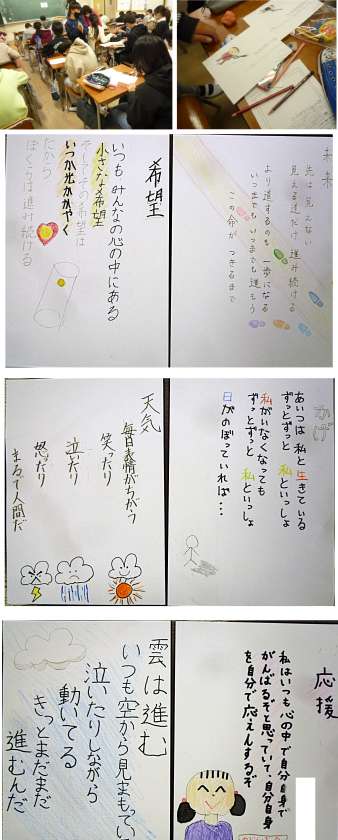 未来
先は見えない
見える道だけ進み続ける
より道するのも一歩になる
いつまでもいつまでも進もう
この命がつきるまで
希望
いつもみんなの心の中にある
小さな希望
そしてその希望は
いつか光かがやく
だから
ぼくらは進み続ける
かげ
あいつは私と生きている
ずっとずっと私といっしょ
私がいなくなっても
ずっとずっと私といっしょ
日がのぼっていれば…
天気
毎日表情がちがう
笑ったり
泣いたり
怒ったり
まるで人間だ
応援
私はいつも心の中で自分自身で
がんばるぞと思っていて、自分自身
を自分で応えんするぞ
雲は進む
いつも空から見まもってい
泣いたりしながら
動いてる
きっとまだまだ
進むんだ